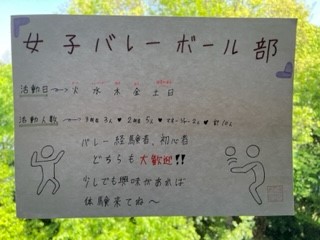 女子バレーボール部
活動日 火 水 木 金 土 日
活動人数 3年生 3人 ♥ 2年生 5人 ♥ 2人 ♥
バレー経験者、初心者
どちらも大歓迎!!
少しでも興味があれば
体験来てね〜